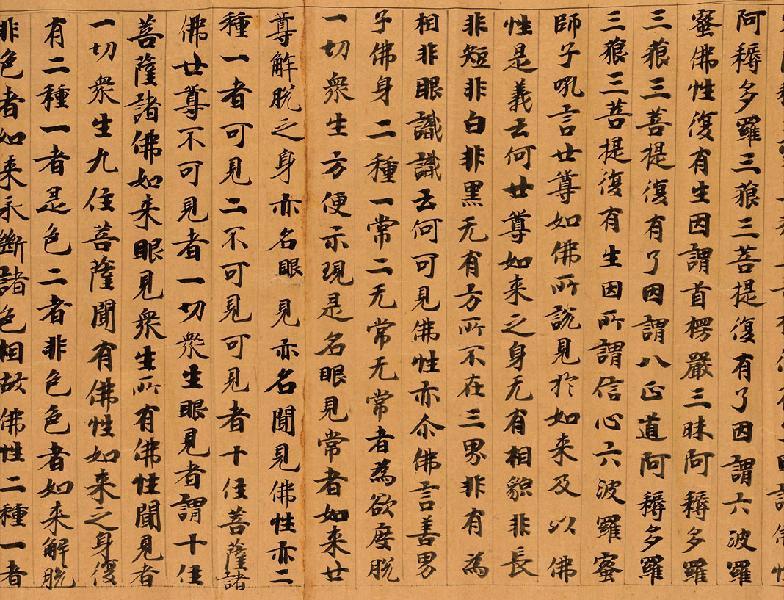 阿耨多羅三藐三菩提復有了因謂六波羅
蜜佛性復有生因謂首楞嚴三昧阿耨多羅
三藐三菩提復有了因謂八正道阿耨多羅
三藐三菩提復有生因所謂信心六波羅蜜
師子吼言世尊如佛所說見於如来及以佛
性是義云何世尊如来之身无有相貌非長
非短非白非黑无有方所不在三界非有為
相非眼識識云何可見佛性亦尒佛言善男
子佛身二種一常二无常无常者為欲度脫
一切衆生方便示現是名眼見常者如来世
尊解脫之身亦名眼見亦名聞見佛性亦二
種一者可見二不可見可見者十住菩薩諸
佛世尊不可見者一切衆生眼見者謂十住
菩薩諸佛如来眼見衆生所有佛性聞見者
一切衆生九住菩薩聞有佛性如来之身復
有二種一者是色二者非色色者如来解脫
非色者如来永斷諸色相故佛性二種一者